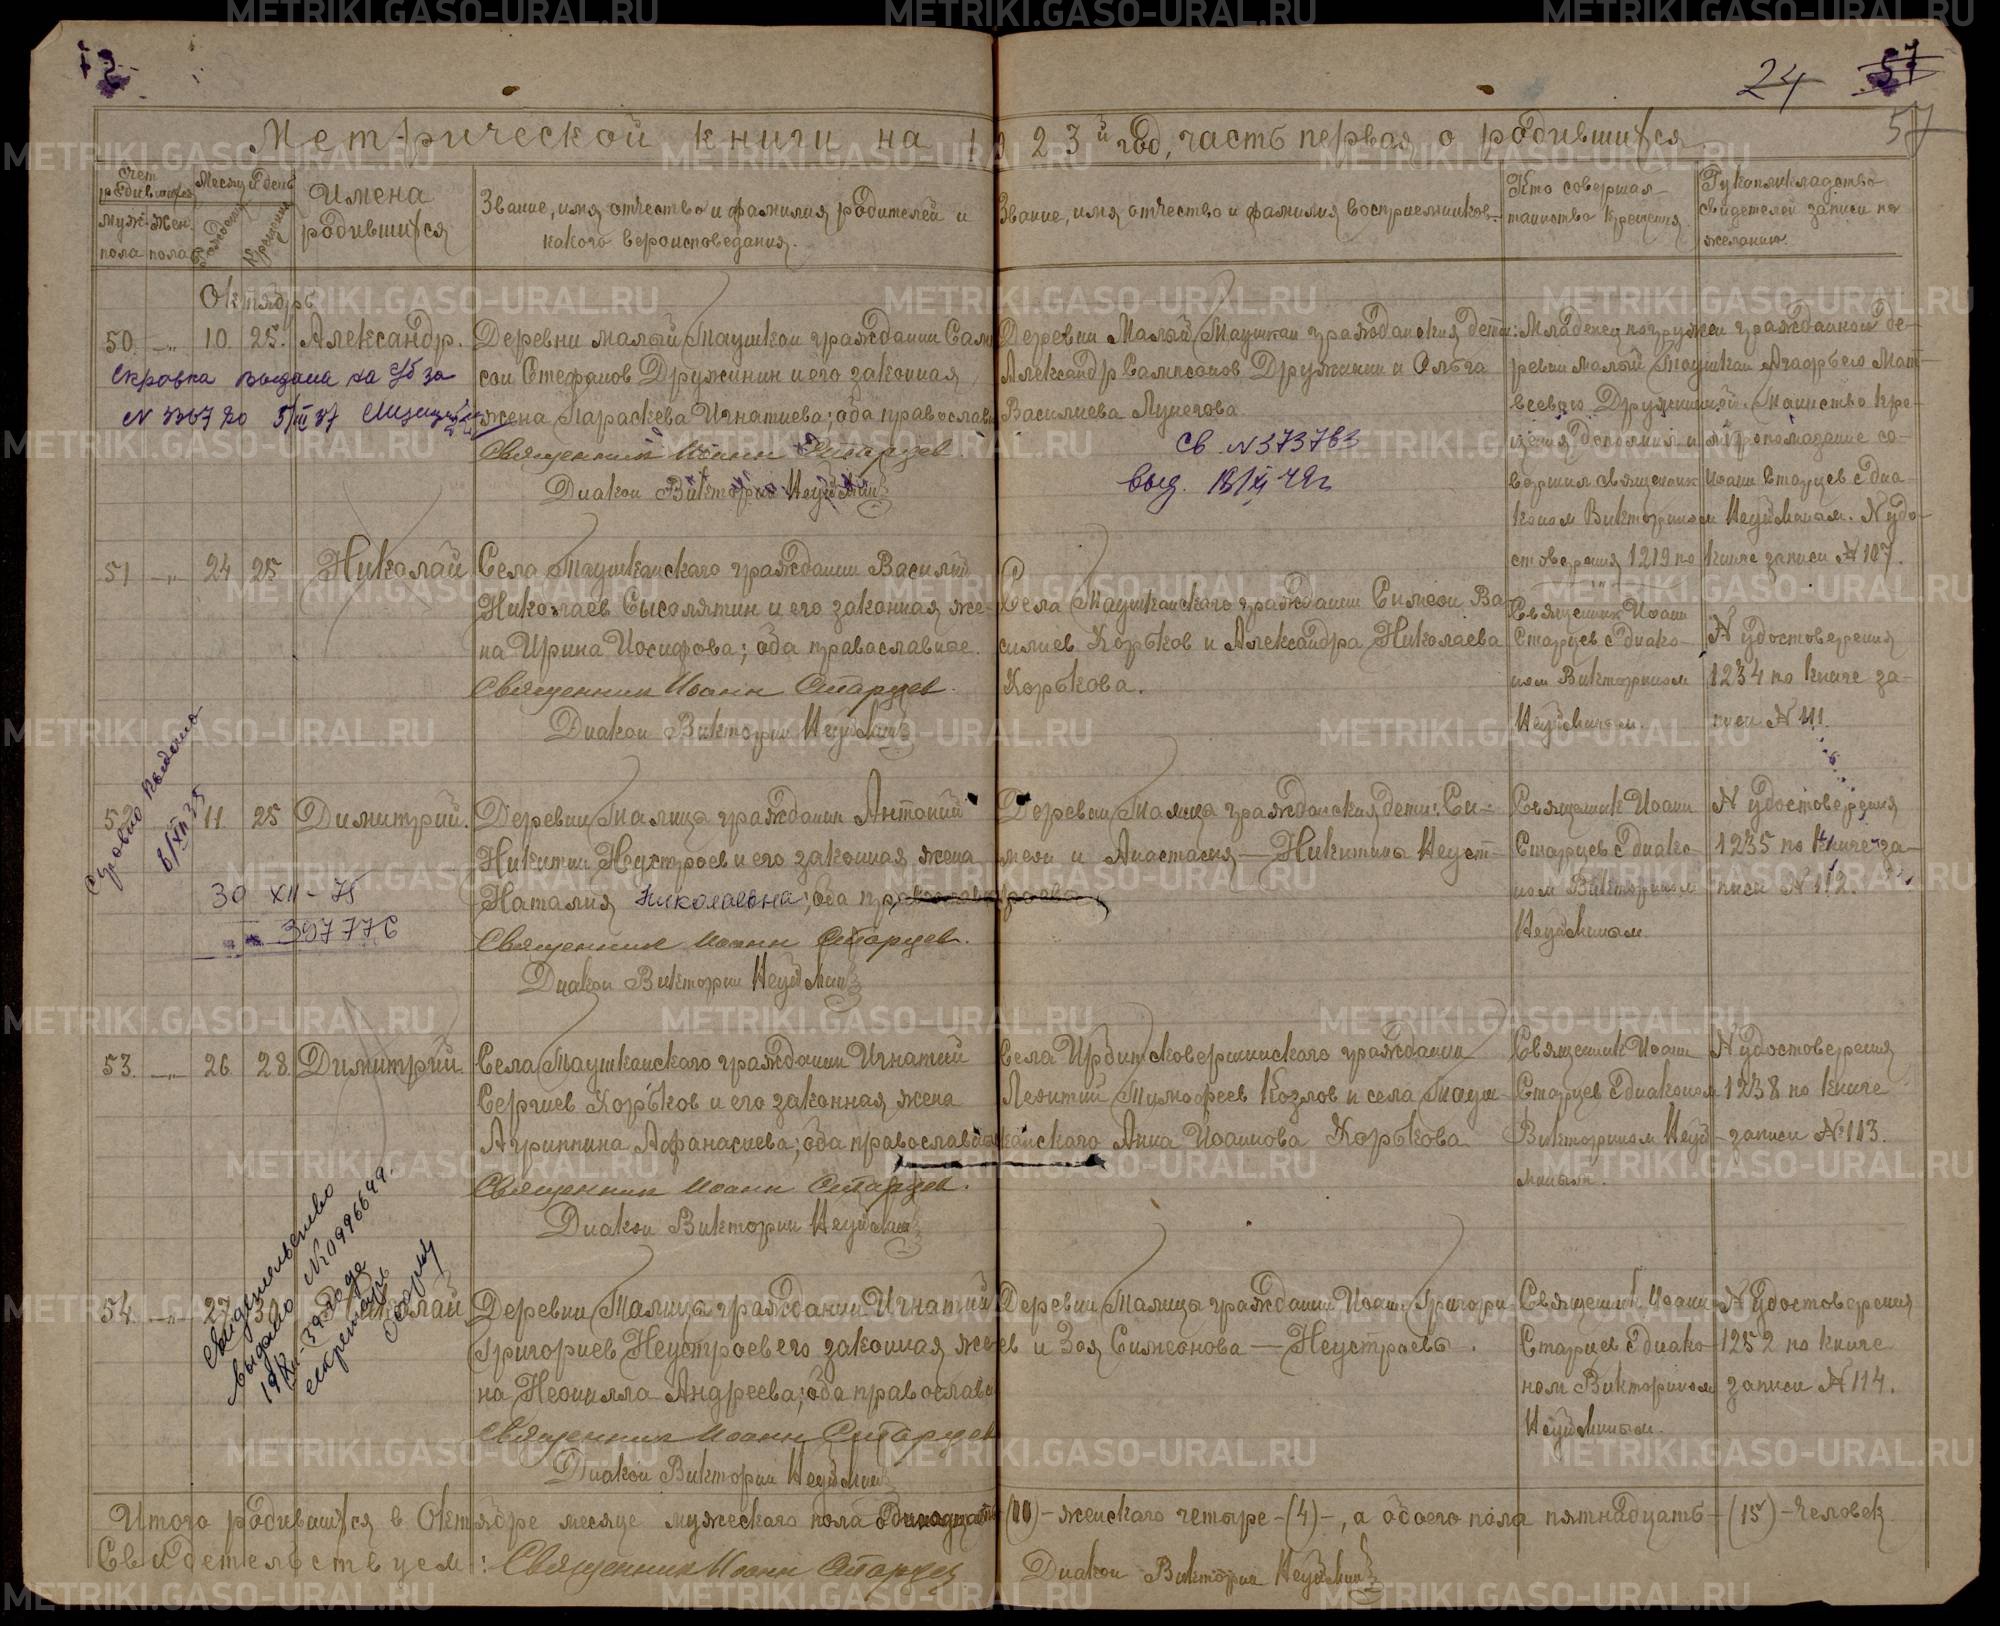 24 57
57
Метрической книги на 1923й год, часть первая о родившихся
Счет родившихся
Месяц и день
муж. пола
жен. пола
рождения
крещения
Имена родившихся
Звание, имя, отчество и фамилия родителей и какого вероисповедания.
Звание, имя, отчество и фамилия восприемников.
Кто совершал таинство крещения
Рукоприкладство свидетелей записи по желанию.
Октябрь
50. -„- 10. 25. Александр.
Деревни малой Таушкан гражданин Самп
сон Стефанов Дружинин и его законная
жена Параскева Игнатиева; оба православн
Священник Иоанн Старцев.
Диакон Викторин Неуймин
Деревни Малой Таушкан гражданския дети:
Александр Сампсонов Дружинин и Ольга
Василиева Лунегова.
Младенец погружен гражданкой де-
ревни малой Таушкан Агафьею Мат-
веевою Дружининой. Таинство кре-
щения дополнил и миропомазание со-
вершил священник Иоанн Старцев с диа-
коном Викторином Неуйминым. N удо-
стоверения 1219 по книге записи № 107.
Справка выдана на
N 3367 до
св. N 373763
выд.
51 -„- 24 25 Николай
Села Таушканского гражданин Василий
Николаев Сысолятин и его законная же-
на Ирина Иосифова; оба православные.
Священник Иоанн Старцев.
Диакон Викторин Неуймин
Села Таушканского гражданин Симеон Ва-
силиев Хорьков и Александра Николаева
Хорькова.
Священник Иоанн
Старцев с диако-
ном Викторином
Неуйминым.
N удостоверения
1234 по книге за-
писи № 111.
52 11. 25 Димитрий.
Деревни Талица гражданин Антоний
Никитин Неустроев и его законная жена
Наталия Николаевна; оба православ
Священник Иоанн Старцев.
Диакон Викторин Неуймин
Деревни Талица гражданския дети: Си-
меон и Анастасия — Никитины Неуст-
роевы
Священник Иоанн
Старцев с диако-
ном Викторином
Неуйминым
N удостоверения
1235 по книге за-
писи N 112.
выдано
30 XII - 75
397776
53. -„- 26 28 Димитрий
Села Таушканского гражданин Игнатий
Сергиев Хорьков и его законная жена
Агриппина Афанасиева; оба православн
Священник Иоанн Старцев.
Диакон Викторин Неуймин
Села Ирбитсковершинского гражданин
Леонтий Тимофеев Козлов и села Тауш-
канского Анна Иоаннова Хорькова
Священник Иоанн
Старцев с диаконом
Викторином Неуй-
миным.
N удостоверения
1238 по книге
записи № 113.
Свидетельство
выдано № 0996649.
секретарь
54. -„- 27 30 Николай
Деревни Талица гражданин Игнатий
Григориев Неустроев его законная же-
на Неонилла Андреева; оба православн
Священник Иоанн Старцев
Диакон Викторин Неуймин
Деревни Талицы гражданин Иоанн Григори-
ев и Зоя Симеонова — Неустроевы.
Священник Иоанн
Старцев с диако-
ном Викторином
Неуйминым.
N удостоверения
1252 по книге
записи № 114.
Итого родившихся в Октябре месяце мужеского пола одинадцать (11) - женского четыре - (4) -, а обоего пола пятнадцать - (15) - человек
Свидетельствуем: Священник Иоанн Старцев Диакон Викторин Неуймин
METRIKI.GASO-URAL.RU